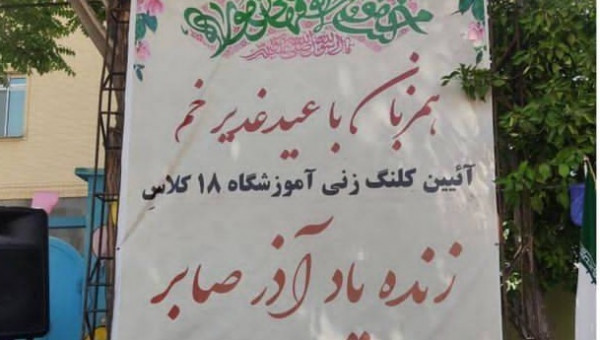 همزبان با عید غدیر خم
آئین کلنگ زنی آموزشگاه ۱۸ کلاس
زنده یاد آذر صابر